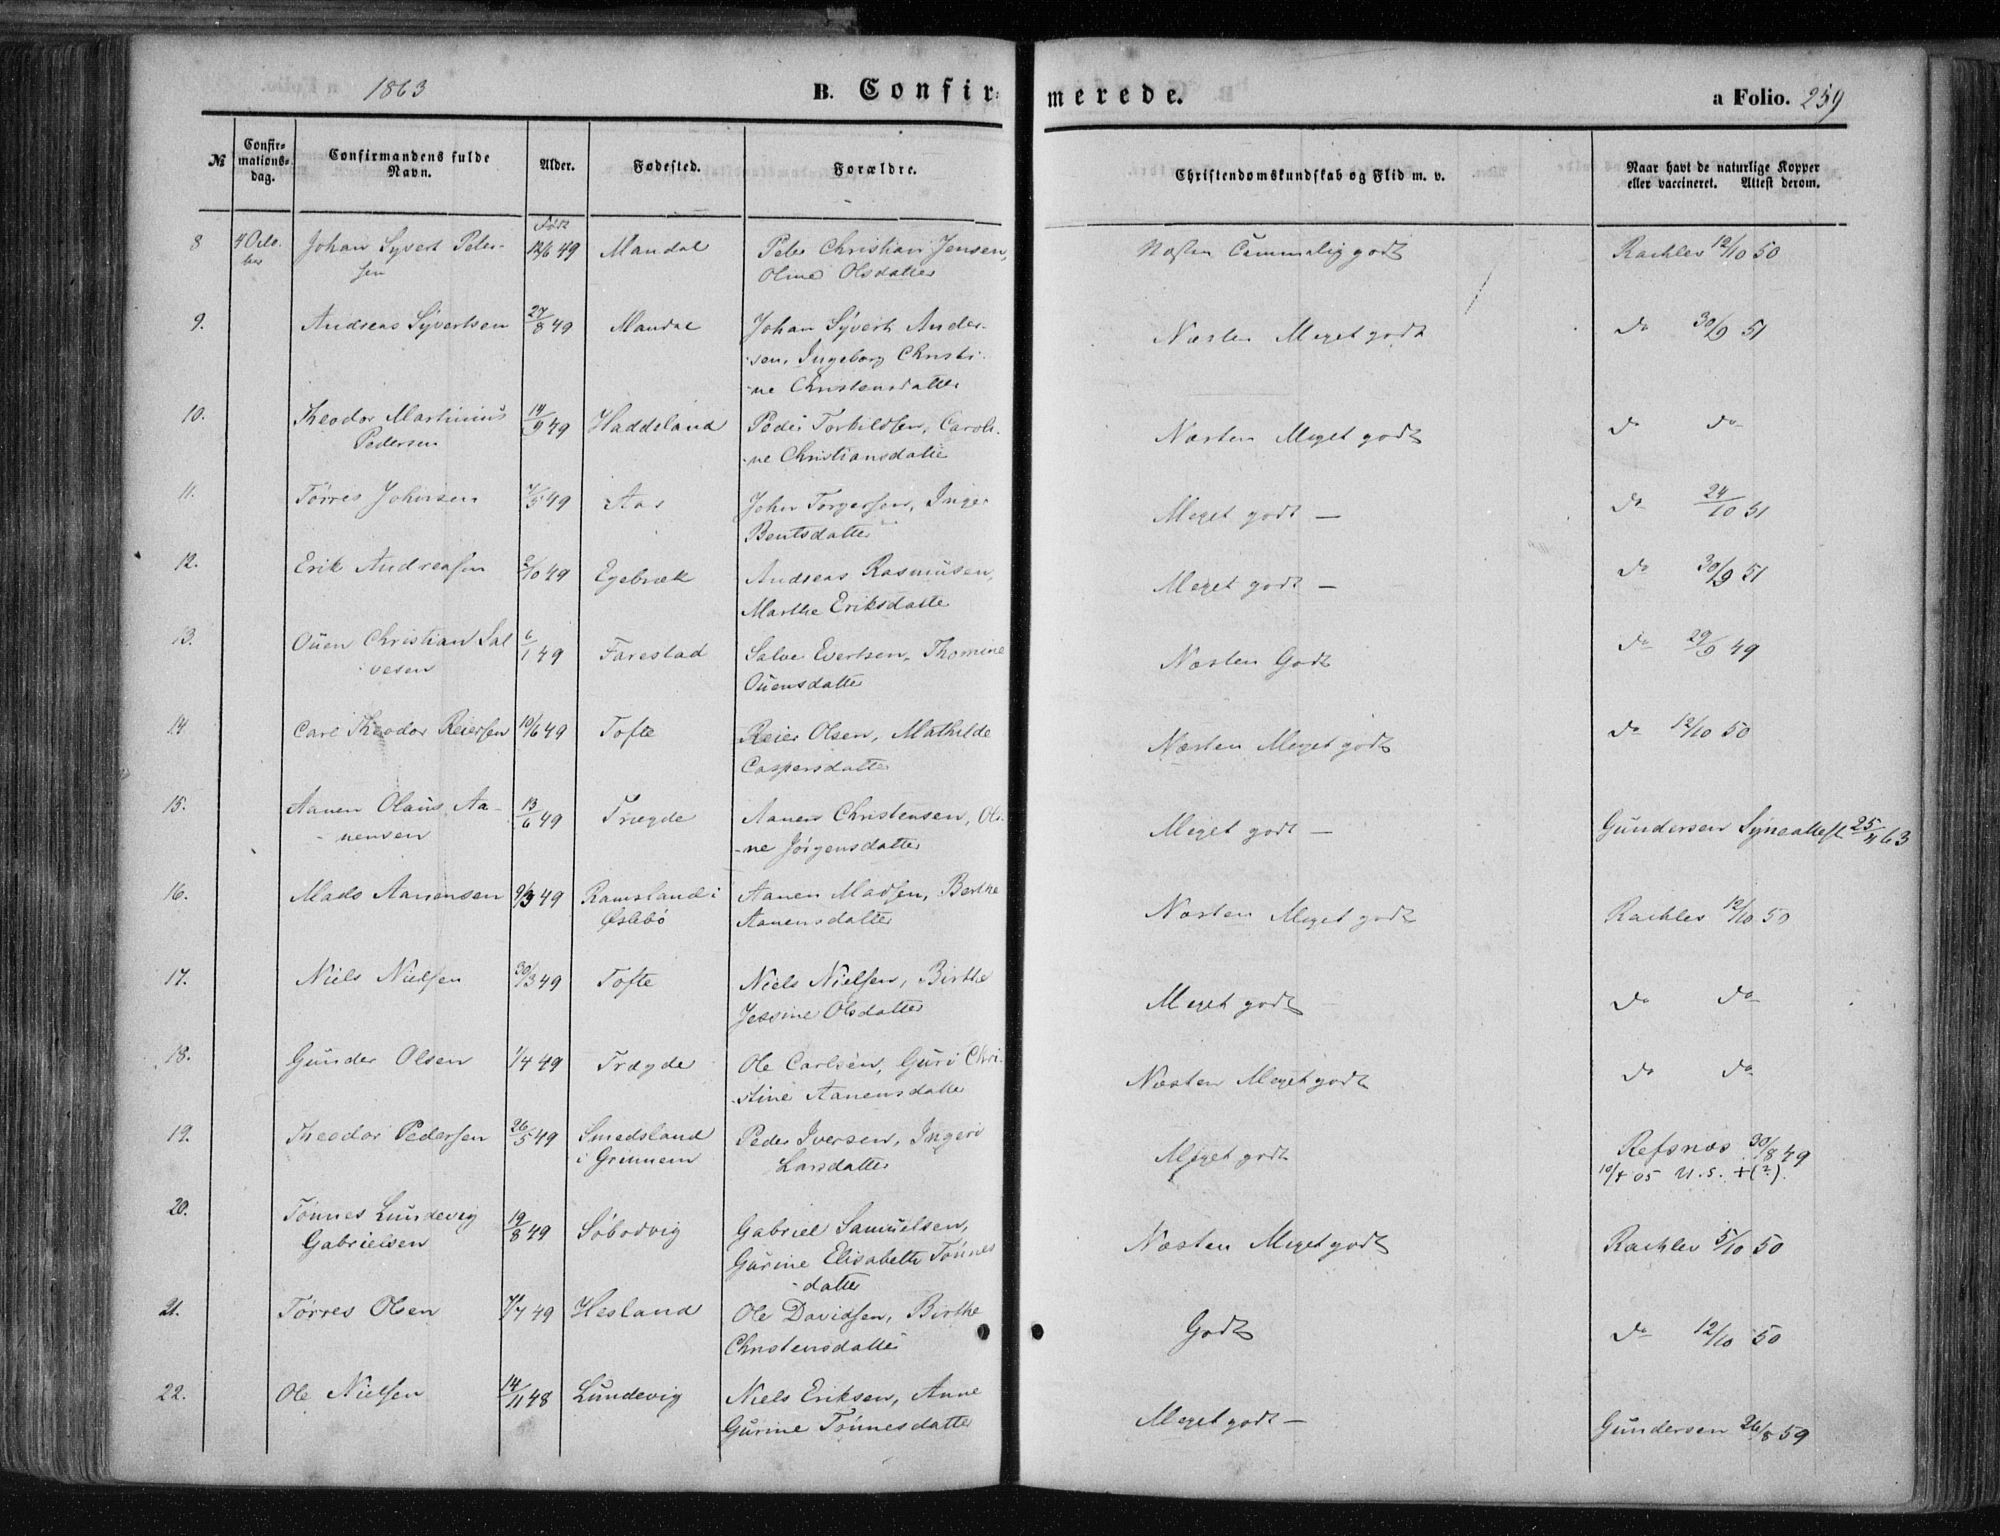 1863 B. Confir- merede. a Folio. 259
№ Confir-mations-dag. Confirmandens fulde Navn. Alder. Fødested. Forældre. Christendomskundskab og Flid m. v. Naar havt de naturlige Kopper eller vaccineret. Attest derom.
Født
8 4 Octo- Johan Syvert Peter- 12/6 49 Mandal Peter Christian Jensen, Næsten Temmelig godt Rachlev 12/10 50
ber sen Oline Olsdatter
9. Andreas Syvertsen 27/8 49 Mandal Johan Syvert Ander- Næsten Meget godt do 30/9 51
sen, Ingeborg Christi-
ne Christensdatter
10. Theodor Martinius 14/9 49 Haddeland Peder Torkildsen, Caroli- Næsten Meget godt do do
Pedersen ne Christiansdatter
11. Tørres Johnsen 7/5 49 Aas John Torgersen, Inger Meget godt — do 24/10 51
Bentsdatter
12. Erik Andreasen 2/10 49 Egebræk Andreas Rasmusen, Meget godt — do 30/9 51
Marthe Eriksdatter
13. Ouen Christian Sal 6/1 49 Farestad Salve Evertsen, Thomine Næsten Godt do 29/9 49
vesen Ouensdatter
14 Carl Theodor Reiersen 10/6 49 Tofte Reier Olsen, Mathilde Næsten Meget godt do 12/10 50
Caspersdatter
15. Aanen Olaus Aa- 13/6 49 Trægde Aanen Christensen, Oli- Meget godt — Gundersen Synsattest 25/4 63
nensen ne Jørgensdatter
16. Mads Aanensen 9/3 49 Ramsland i Aanen Madsen, Berthe Næsten Meget godt Rachlev 12/10 50
Øslebø Aanensdatter
17. Niels Nielsen 30/3 49 Tofte Niels Nielsen, Birthe Meget godt do do
Jessine Olsdatter
18. Gunder Olsen 1/4 49 Trægde Ole Carlsen, Guri Chri- Næsten Meget godt do do
stine Aanensdatter
19. Theodor Pedersen 26/5 49 Smedsland Peder Iversen, Ingeri Meget godt Refsnæs 30/8 49
i Grinnem Larsdatter 10/4 05 U.S. +(2).
20. Tønnes Lundevig 19/8 49 Søbodvig Gabriel Samuelsen, Næsten Meget godt Rachlev 5/10 50
Gabrielsen Gurine Elisabeth Tønnes
datter
21. Tørres Olsen 7/7 49 Hesland Ole Davidsen, Birthe Godt do 12/10 50
Christensdatter
22. Ole Nielsen 14/11 48 Lundevig Niels Eriksen, Anne Meget godt — Gundersen 26/8 59
Gurine Tønnesdatter